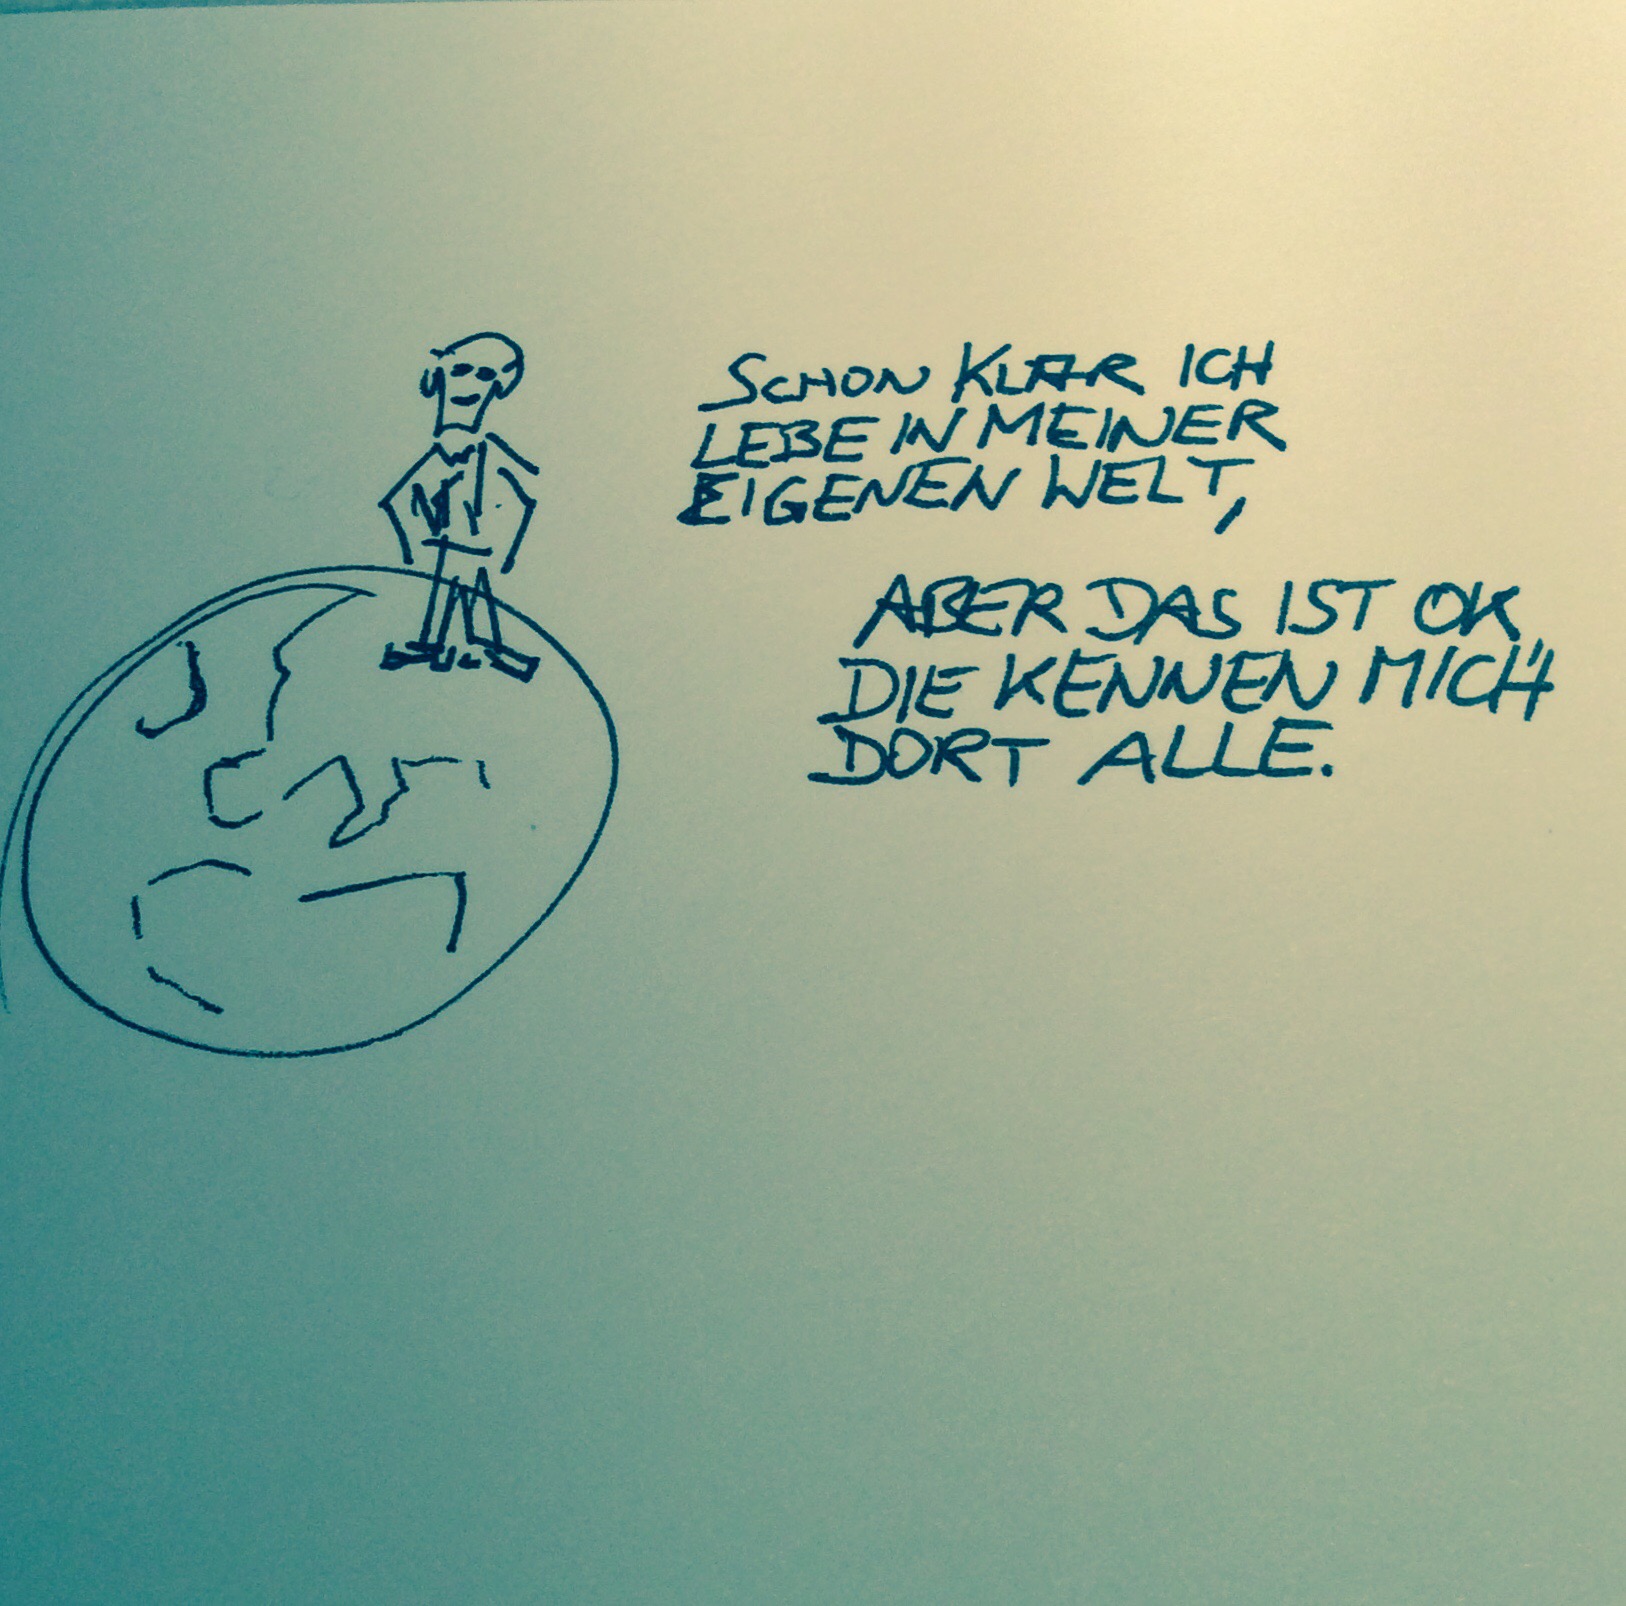 SCHON KLAR ICH
LEBE IN MEINER
EIGENEN WELT,
ABER DAS IST OK
DIE KENNEN MICH
DORT ALLE.